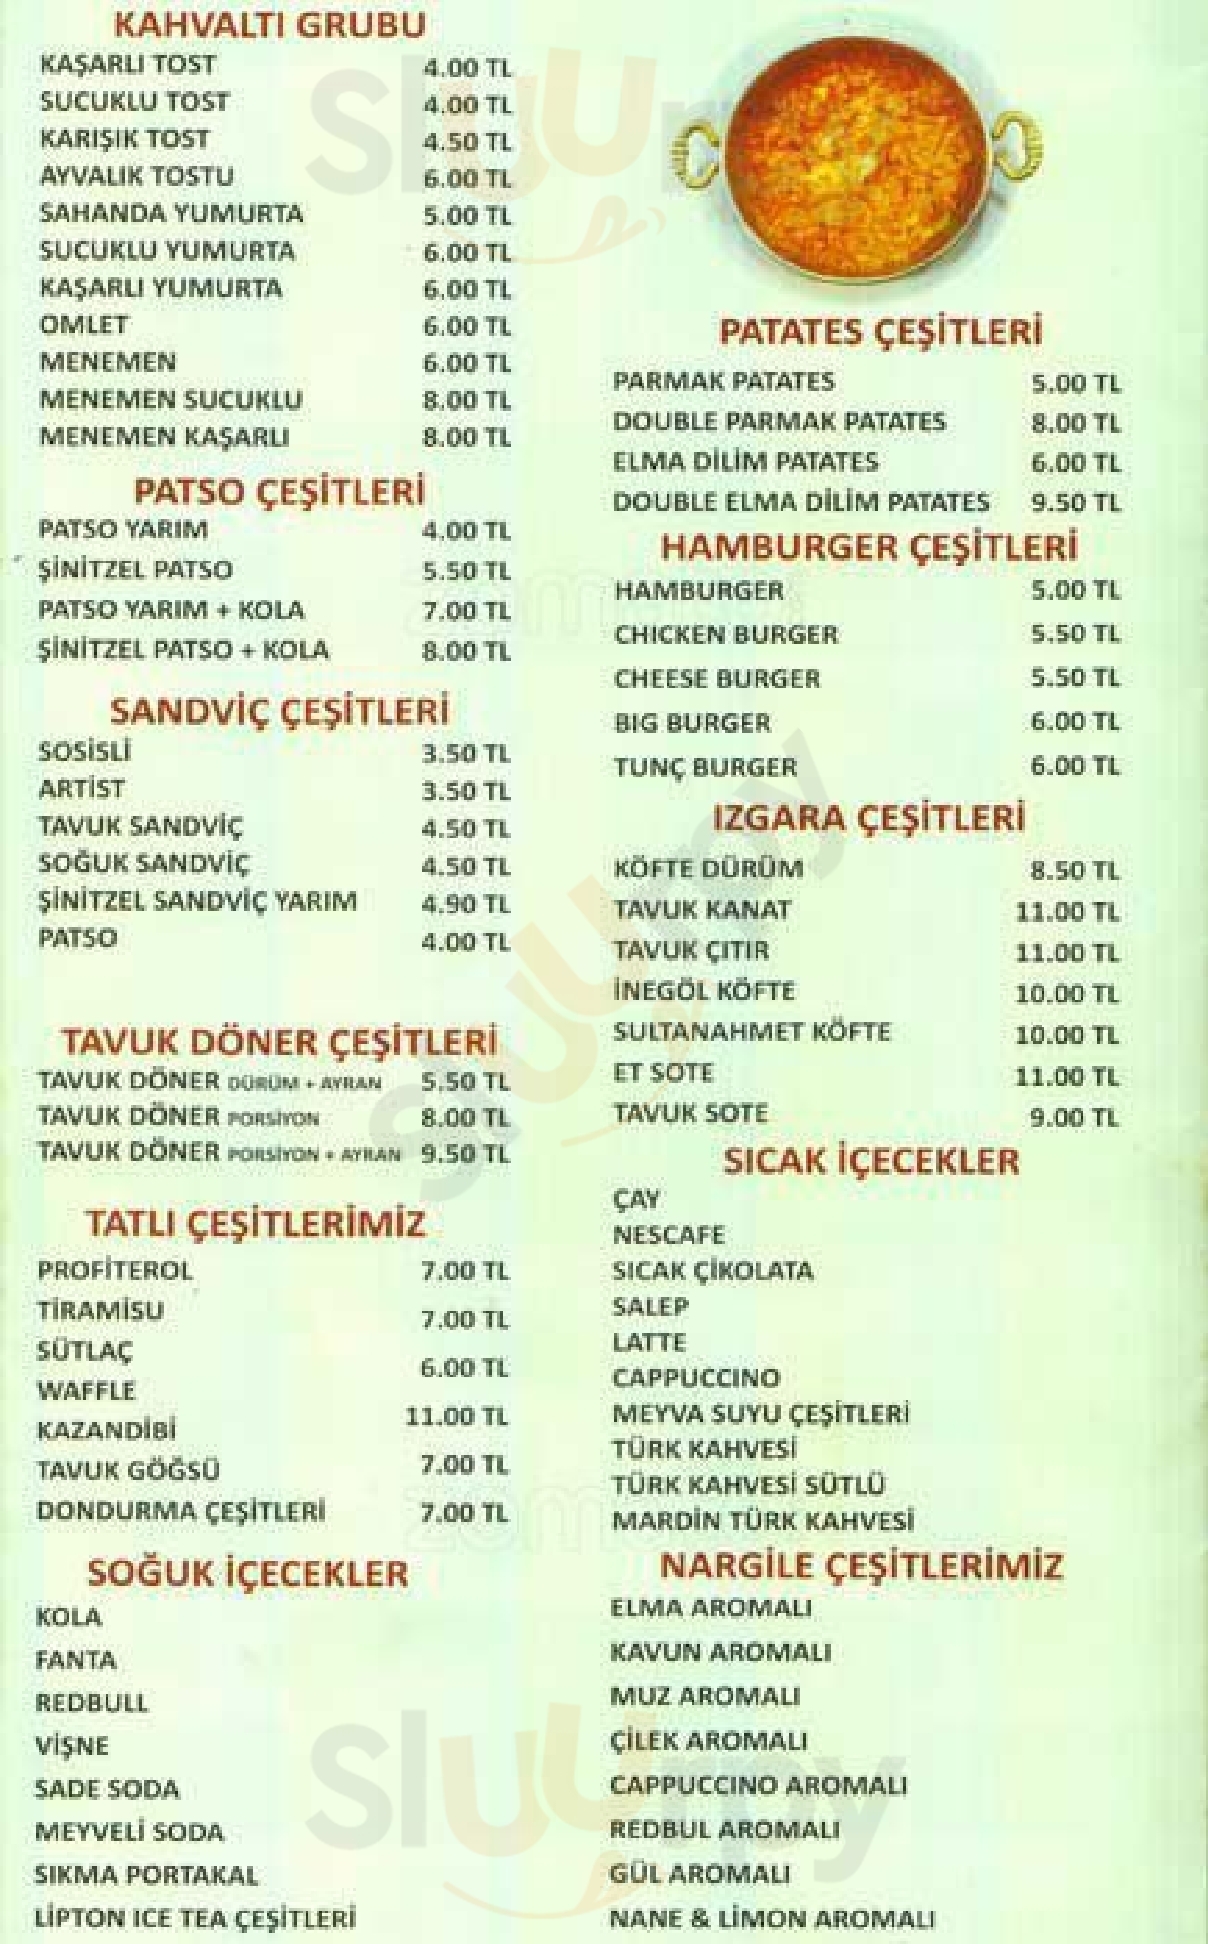 KAHVALTI GRUBU
KAŞARLI TOST 4.00 TL
SUCUKLU TOST 4.00 TL
KARIŞIK TOST 4.50 TL
AYVALIK TOSTU 6.00 TL
SAHANDA YUMURTA 5.00 TL
SUCUKLU YUMURTA 6.00 TL
KAŞARLI YUMURTA 6.00 TL
OMLET 6.00 TL
MENEMEN 6.00 TL
MENEMEN SUCUKLU 8.00 TL
MENEMEN KAŞARLI 8.00 TL
PATSO ÇEŞİTLERİ
PATSO YARIM 4.00 TL
ŞİNİTZEL PATSO 5.50 TL
PATSO YARIM + KOLA 7.00 TL
ŞİNİTZEL PATSO + KOLA 8.00 TL
SANDVİÇ ÇEŞİTLERİ
SOSİSLİ 3.50 TL
ARTİST 3.50 TL
TAVUK SANDVİÇ 4.50 TL
SOĞUK SANDVİÇ 4.50 TL
ŞİNİTZEL SANDVİÇ YARIM 4.90 TL
PATSO 4.00 TL
TAVUK DÖNER ÇEŞİTLERİ
TAVUK DÖNER DÜRÜM + AYRAN 5.50 TL
TAVUK DÖNER PORSİYON 8.00 TL
TAVUK DÖNER PORSİYON + AYRAN 9.50 TL
TATLI ÇEŞİTLERİMİZ
PROFİTEROL 7.00 TL
TİRAMİSU 7.00 TL
SÜTLAÇ 6.00 TL
WAFFLE 11.00 TL
KAZANDİBİ 7.00 TL
TAVUK GÖĞSÜ
DONDURMA ÇEŞİTLERİ 7.00 TL
SOĞUK İÇECEKLER
KOLA
FANTA
REDBULL
VİŞNE
SADE SODA
MEYVELİ SODA
SIKMA PORTAKAL
LİPTON ICE TEA ÇEŞİTLERİ
PATATES ÇEŞİTLERİ
PARMAK PATATES 5.00 TL
DOUBLE PARMAK PATATES 8.00 TL
ELMA DİLİM PATATES 6.00 TL
DOUBLE ELMA DİLİM PATATES 9.50 TL
HAMBURGER ÇEŞİTLERİ
HAMBURGER 5.00 TL
CHICKEN BURGER 5.50 TL
CHEESE BURGER 5.50 TL
BIG BURGER 6.00 TL
TUNÇ BURGER 6.00 TL
IZGARA ÇEŞİTLERİ
KÖFTE DÜRÜM 8.50 TL
TAVUK KANAT 11.00 TL
TAVUK ÇITIR 11.00 TL
İNEGÖL KÖFTE 10.00 TL
SULTANAHMET KÖFTE 10.00 TL
ET SOTE 11.00 TL
TAVUK SOTE 9.00 TL
SICAK İÇECEKLER
ÇAY
NESCAFE
SICAK ÇİKOLATA
SALEP
LATTE
CAPPUCCINO
MEYVA SUYU ÇEŞİTLERİ
TÜRK KAHVESİ
TÜRK KAHVESİ SÜTLÜ
MARDİN TÜRK KAHVESİ
NARGİLE ÇEŞİTLERİMİZ
ELMA AROMALI
KAVUN AROMALI
MUZ AROMALI
ÇİLEK AROMALI
CAPPUCCINO AROMALI
REDBUL AROMALI
GÜL AROMALI
NANE & LİMON AROMALI
Sluurpy
Sluurpy
Sluurpy
zomato